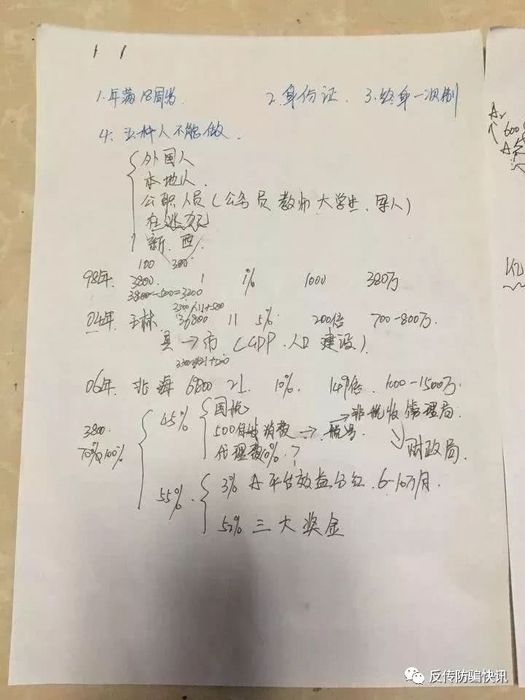 1.年满18周岁 2.身份证. 3.终身一次制
4.五种人不能做.
外国人
本地人.
公职人员(公务员 教师 大学生.军人)
在逃
新.西.
100 300
98年. 3800. 1 1% 1000 380万
3800-500=3300
04年. 玉林 36800 11 5% 200倍 700-800万.
县→市(GDP.人口 建设)
06年. 北海 6800 21. 10% 149倍. 1000-1500万.
3800
45% 国税
500 消费→税务 →非税收管理局.
财政局.
55% 3% A平台效益分红. 6-10万/月
52% 三大奖金
A
600
反传防骗快讯